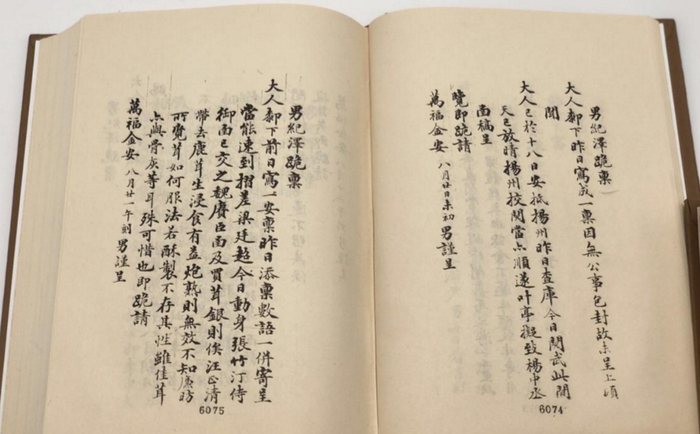 男紀澤跪禀
大人鄒下昨日寫成一禀因無公事包封故未呈上頃
聞
大人已於十八日安抵揚州昨日查庫今日閱武此間
天已放晴揚州校閱當亦順遂叶亭擬致楊中丞
南稿呈
覽即跪請
萬福金安 八月廿日未初男謹呈
6074
男紀澤跪禀
大人鄒下前日寫一安禀昨日添禀數語一併寄呈
當能速到摺差梁廷超今日動身張竹汀侍
御南已交之魏賡臣南及買茸銀則俟汪正清
帶去鹿茸生浸食有益炮熟則無效不知廣昉
所覓茸如何服法若酥製不存其性雖佳茸
亦與骨灰等耳殊可惜也即跪請
萬福金安 八月廿一午刻男謹呈
6075